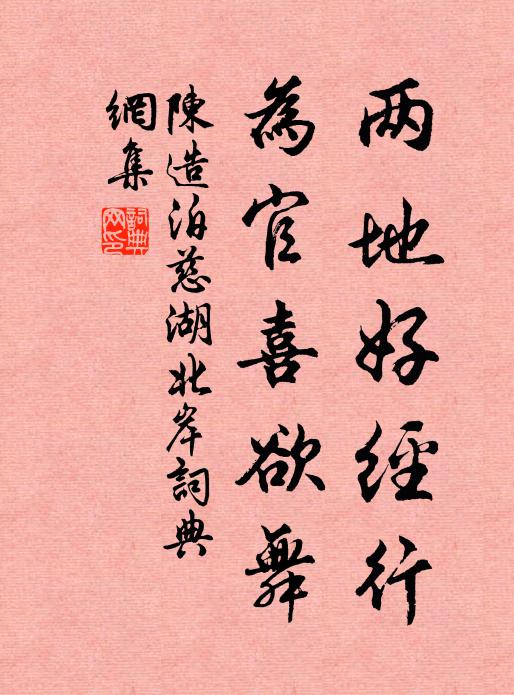 两地好經行
為官喜欲舞
陳造泊慈湖北岸詞典
網集
詞典网印